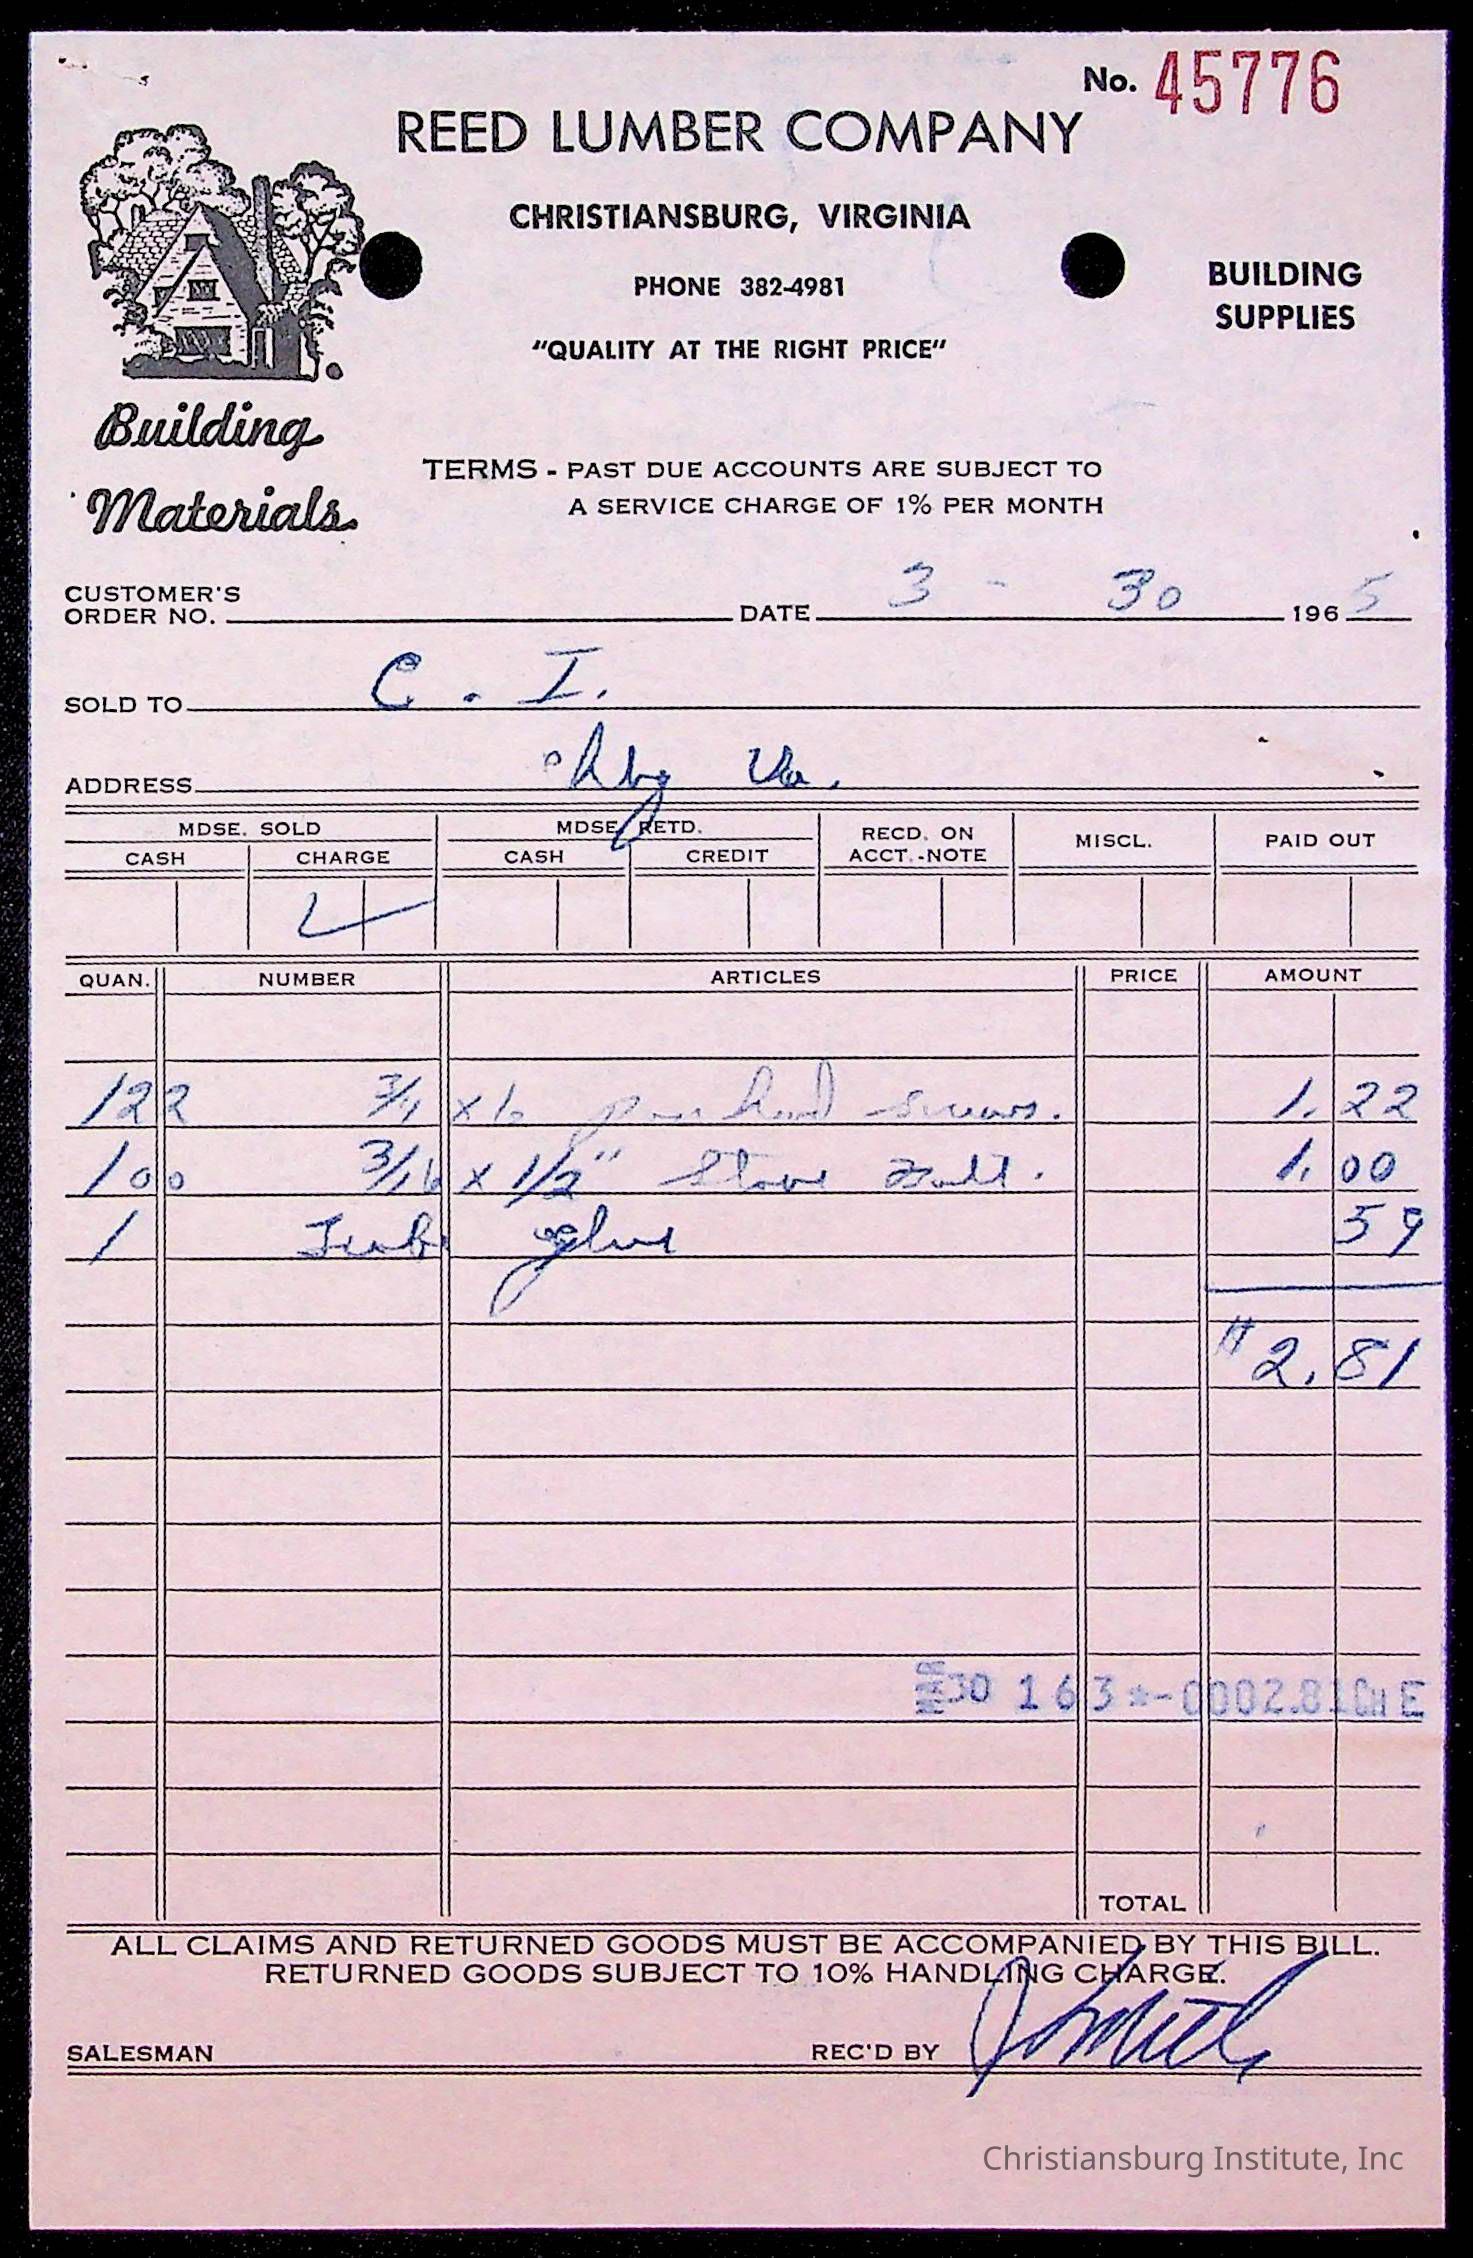 No. 45776
REED LUMBER COMPANY
CHRISTIANSBURG, VIRGINIA
PHONE 382-4981
BUILDING
SUPPLIES
"QUALITY AT THE RIGHT PRICE"
Building
Materials
TERMS - PAST DUE ACCOUNTS ARE SUBJECT TO
A SERVICE CHARGE OF 1% PER MONTH
CUSTOMER'S
ORDER NO. DATE 3 - 30 1965
SOLD TO C. I.
ADDRESS Chbg Va.
MDSE. SOLD MDSE. RETD. RECD. ON ACCT.-NOTE MISCL. PAID OUT
CASH CHARGE CASH CREDIT
QUAN. NUMBER ARTICLES PRICE AMOUNT
122 3/4 x 6 pan head screws. 1.22
100 3/16 x 1/2" Stove Bolt. 1.00
1 Tube glue 59
2.81
MAR 30 163*-0002.81CH E
TOTAL
ALL CLAIMS AND RETURNED GOODS MUST BE ACCOMPANIED BY THIS BILL.
RETURNED GOODS SUBJECT TO 10% HANDLING CHARGE.
SALESMAN REC'D BY
Christiansburg Institute, Inc